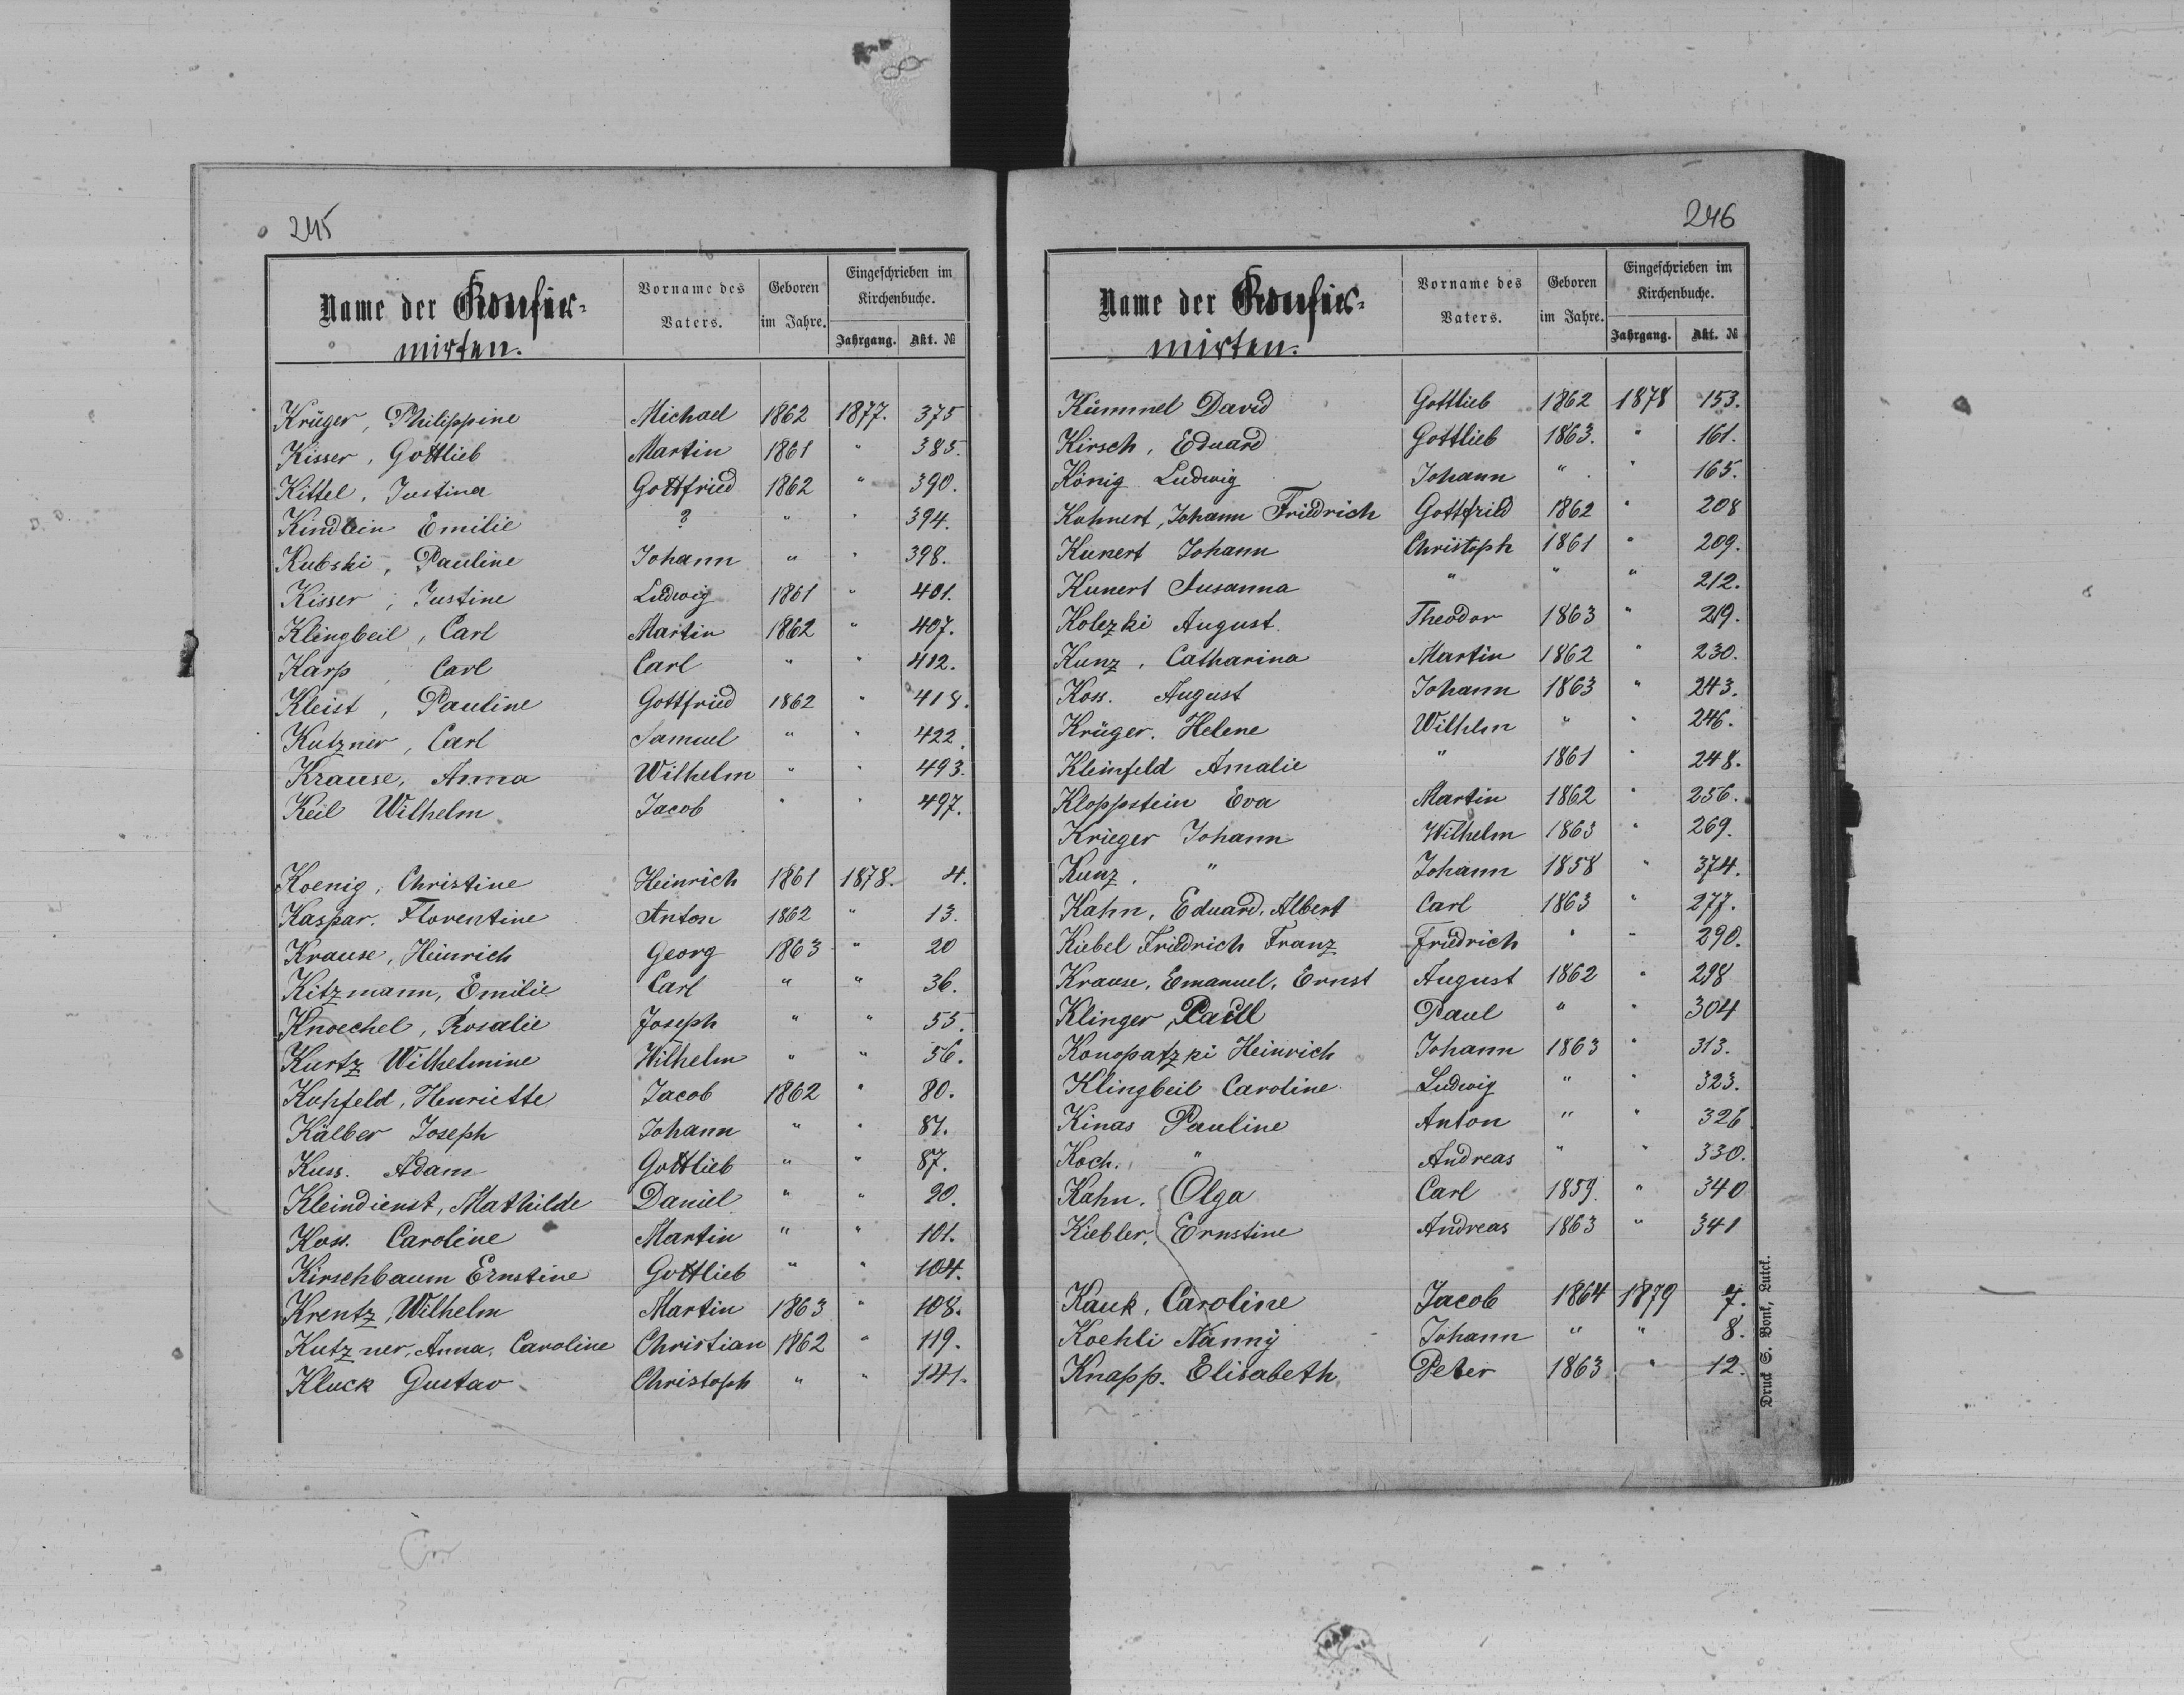 245
Name der Konfir-
mirten.
Vorname des
Vaters.
Geboren
im Jahre.
Eingeschrieben im
Kirchenbuche.
Jahrgang. Akt. №
Krüger, Philippine Michael 1862 1877. 375
Kisser, Gottlieb Martin 1861 " 385.
Kittel, Justina Gottfried 1862 " 390.
Kindlein Emilie ? " " 394.
Kubski, Pauline Johann " " 398.
Kisser, Justine Ludwig 1861 " 401.
Klingbeil, Carl Martin 1862 " 407.
Karp, Carl Carl " " 412.
Kleist, Pauline Gottfried 1862 " 418.
Kutzner, Carl Samuel " " 422.
Krause, Anna Wilhelm " " 493.
Keil Wilhelm Jacob " " 497.
Koenig, Christine Heinrich 1861 1878. 4.
Kaspar. Florentine Anton 1862 " 13.
Krause, Heinrich Georg 1863 " 20
Kitzmann, Emilie Carl " " 36.
Knoechel, Rosalie Joseph " " 55.
Kurtz Wilhelmine Wilhelm " " 56.
Kuhfeld, Henriette Jacob 1862 " 80.
Kälber Joseph Johann " " 81.
Kuss. Adam Gottlieb " " 87.
Kleindienst, Mathilde Daniel " " 90.
Koss. Caroline Martin " " 101.
Kirschbaum Ernstine Gottlieb " " 104.
Krentz, Wilhelm Martin 1863 " 108.
Kutzner, Anna, Caroline Christian 1862 " 119.
Kluck Gustav Christoph " " 141.
246
Name der Konfir-
mirten.
Vorname des
Vaters.
Geboren
im Jahre.
Eingeschrieben im
Kirchenbuche.
Jahrgang. Akt. №
Kümmel David Gottlieb 1862 1878 153.
Kirsch, Eduard Gottlieb 1863. " 161.
König Ludwig Johann " " 165.
Kohnert, Johann Friedrich Gottfried 1862 " 208
Kunert Johann Christoph 1861 " 209.
Kunert Susanna " " " 212.
Kolezki August Theodor 1863 " 219.
Kunz, Catharina Martin 1862 " 230.
Koss. August Johann 1863 " 243.
Krüger. Helene Wilhelm " " 246.
Kleinfeld Amalie " 1861 " 248.
Kloppstein Eva Martin 1862 " 256.
Krieger Johann Wilhelm 1863 " 269.
Kunz. " Johann 1858 " 374.
Kahn, Eduard, Albert Carl 1863 " 277.
Kiebel Friedrich Franz Friedrich " " 290.
Krause, Emanuel, Ernst August 1862 " 298
Klinger, Paul Paul " " 304
Konopatzki Heinrich Johann 1863 " 313.
Klingbeil Caroline Ludwig " " 323.
Kinas Pauline Anton " " 326
Koch. " Andreas " " 330.
Kahn. Olga Carl 1859. " 340
Kiebler, Ernstine Andreas 1863 " 341
Kauk, Caroline Jacob 1864 1879 7.
Koehli Nanny Johann " " 8.
Knapp. Elisabeth Peter 1863 " 12.
Druck S. Bonk, Lutck.